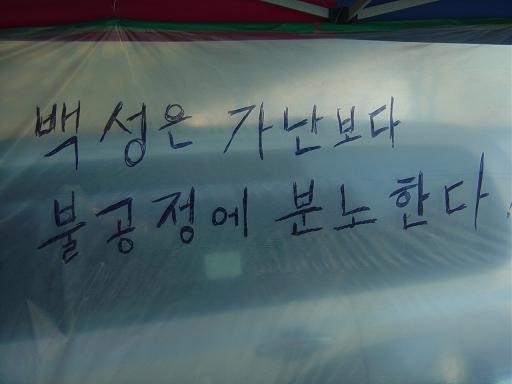 백성은 가난보다
불공정에 분노한다